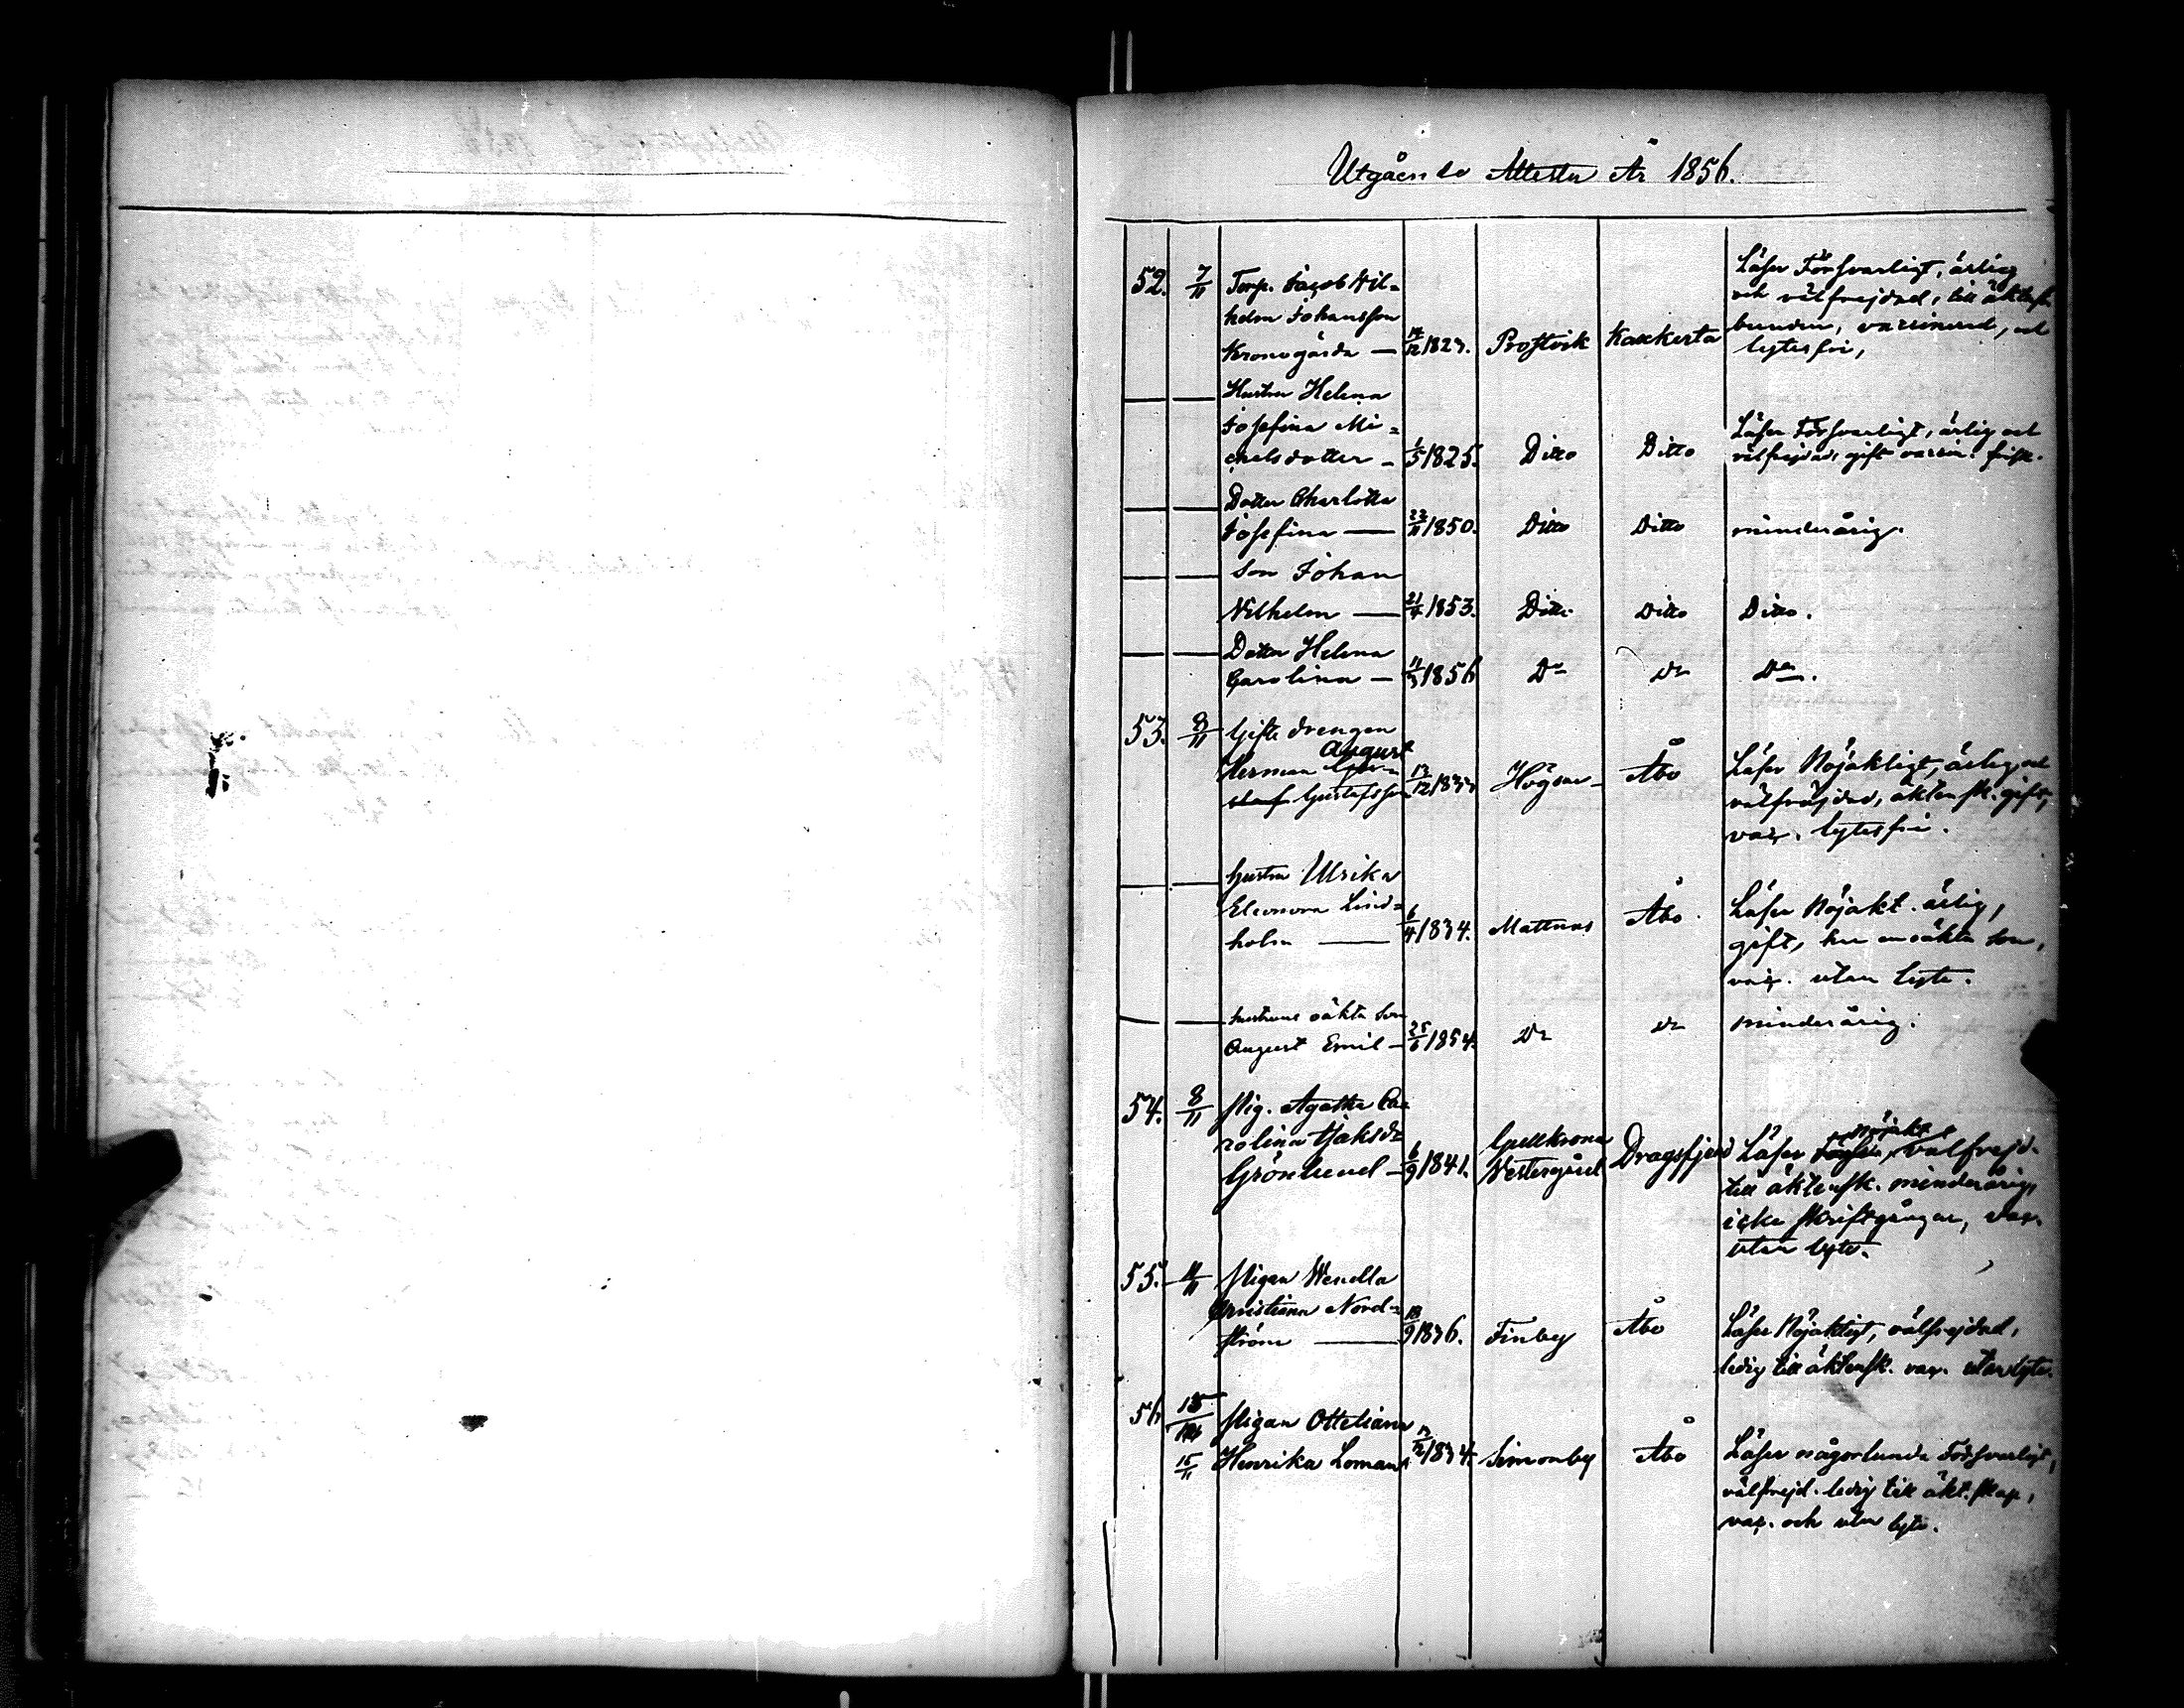 Utgående Attester År 1856.
52. 7/11 Torp. Jacob Wil=
helm Johansson
Kronogårda — 14/12 1823. Prostvik Kakskerta
Läser Försvarligt, ärlig
och välfrejdad, till äktensk.
bunden, vaccinerad, och
lytesfri,
— — Hustru Helena
Josefina Mi=
chelsdotter - 1/5 1825. Ditto Ditto
Läser Försvarligt, ärlig och
välfrejdad, gift vaccin. frisk.
— — Dotter Charlotta
Josefina — 22/11 1850. Ditto Ditto minderårig.
— — Son Johan
Wilhelm — 21/4 1853. Ditto Ditto Ditto.
— — Dotter Helena
Carolina — 11/3 1856 Do do Do.
53. 8/11 Gifte drengen
August
Herman Gu=
staf Gustafsson 13/12 1833 Högsar Åbo
Läser Nöjaktigt, ärlig och
välfräjdad, äktensk. gift,
vac. lytesfri.
— — hustru Ulrika
Eleonora Lind=
holm — 6/4 1834. Mattnas Åbo
Läser Nöjakt. ärlig,
gift, har en oäkta son,
vac. utan lyte.
— — hustruns oäkta son
August Emil — 25/6 1854. do do minderårig.
54. 8/11 Pig. Agatha Ca=
rolina Isaksdr
Grönlund — 6/9 1841. Gullkrona
Westergård Dragsfjerd
nöjakt
Läser välfrejd.
till äktensk. minderårig,
icke skriftgången, vac.
utan lyte.
55. 11/11 Pigan Wendla
Christiana Nord=
ström — 18/9 1836. Finby Åbo
Läser Nöjaktigt, välfrejdad,
ledig till äktensk. vac. utan lyte.
56 15/11 Pigan Otteliana
15/11 Henrika Loman 13/12 1834. Simonby Åbo
Läser någorlunda Försvarligt,
välfrejd. ledig till äkt.skap,
vac. och utan lyte.